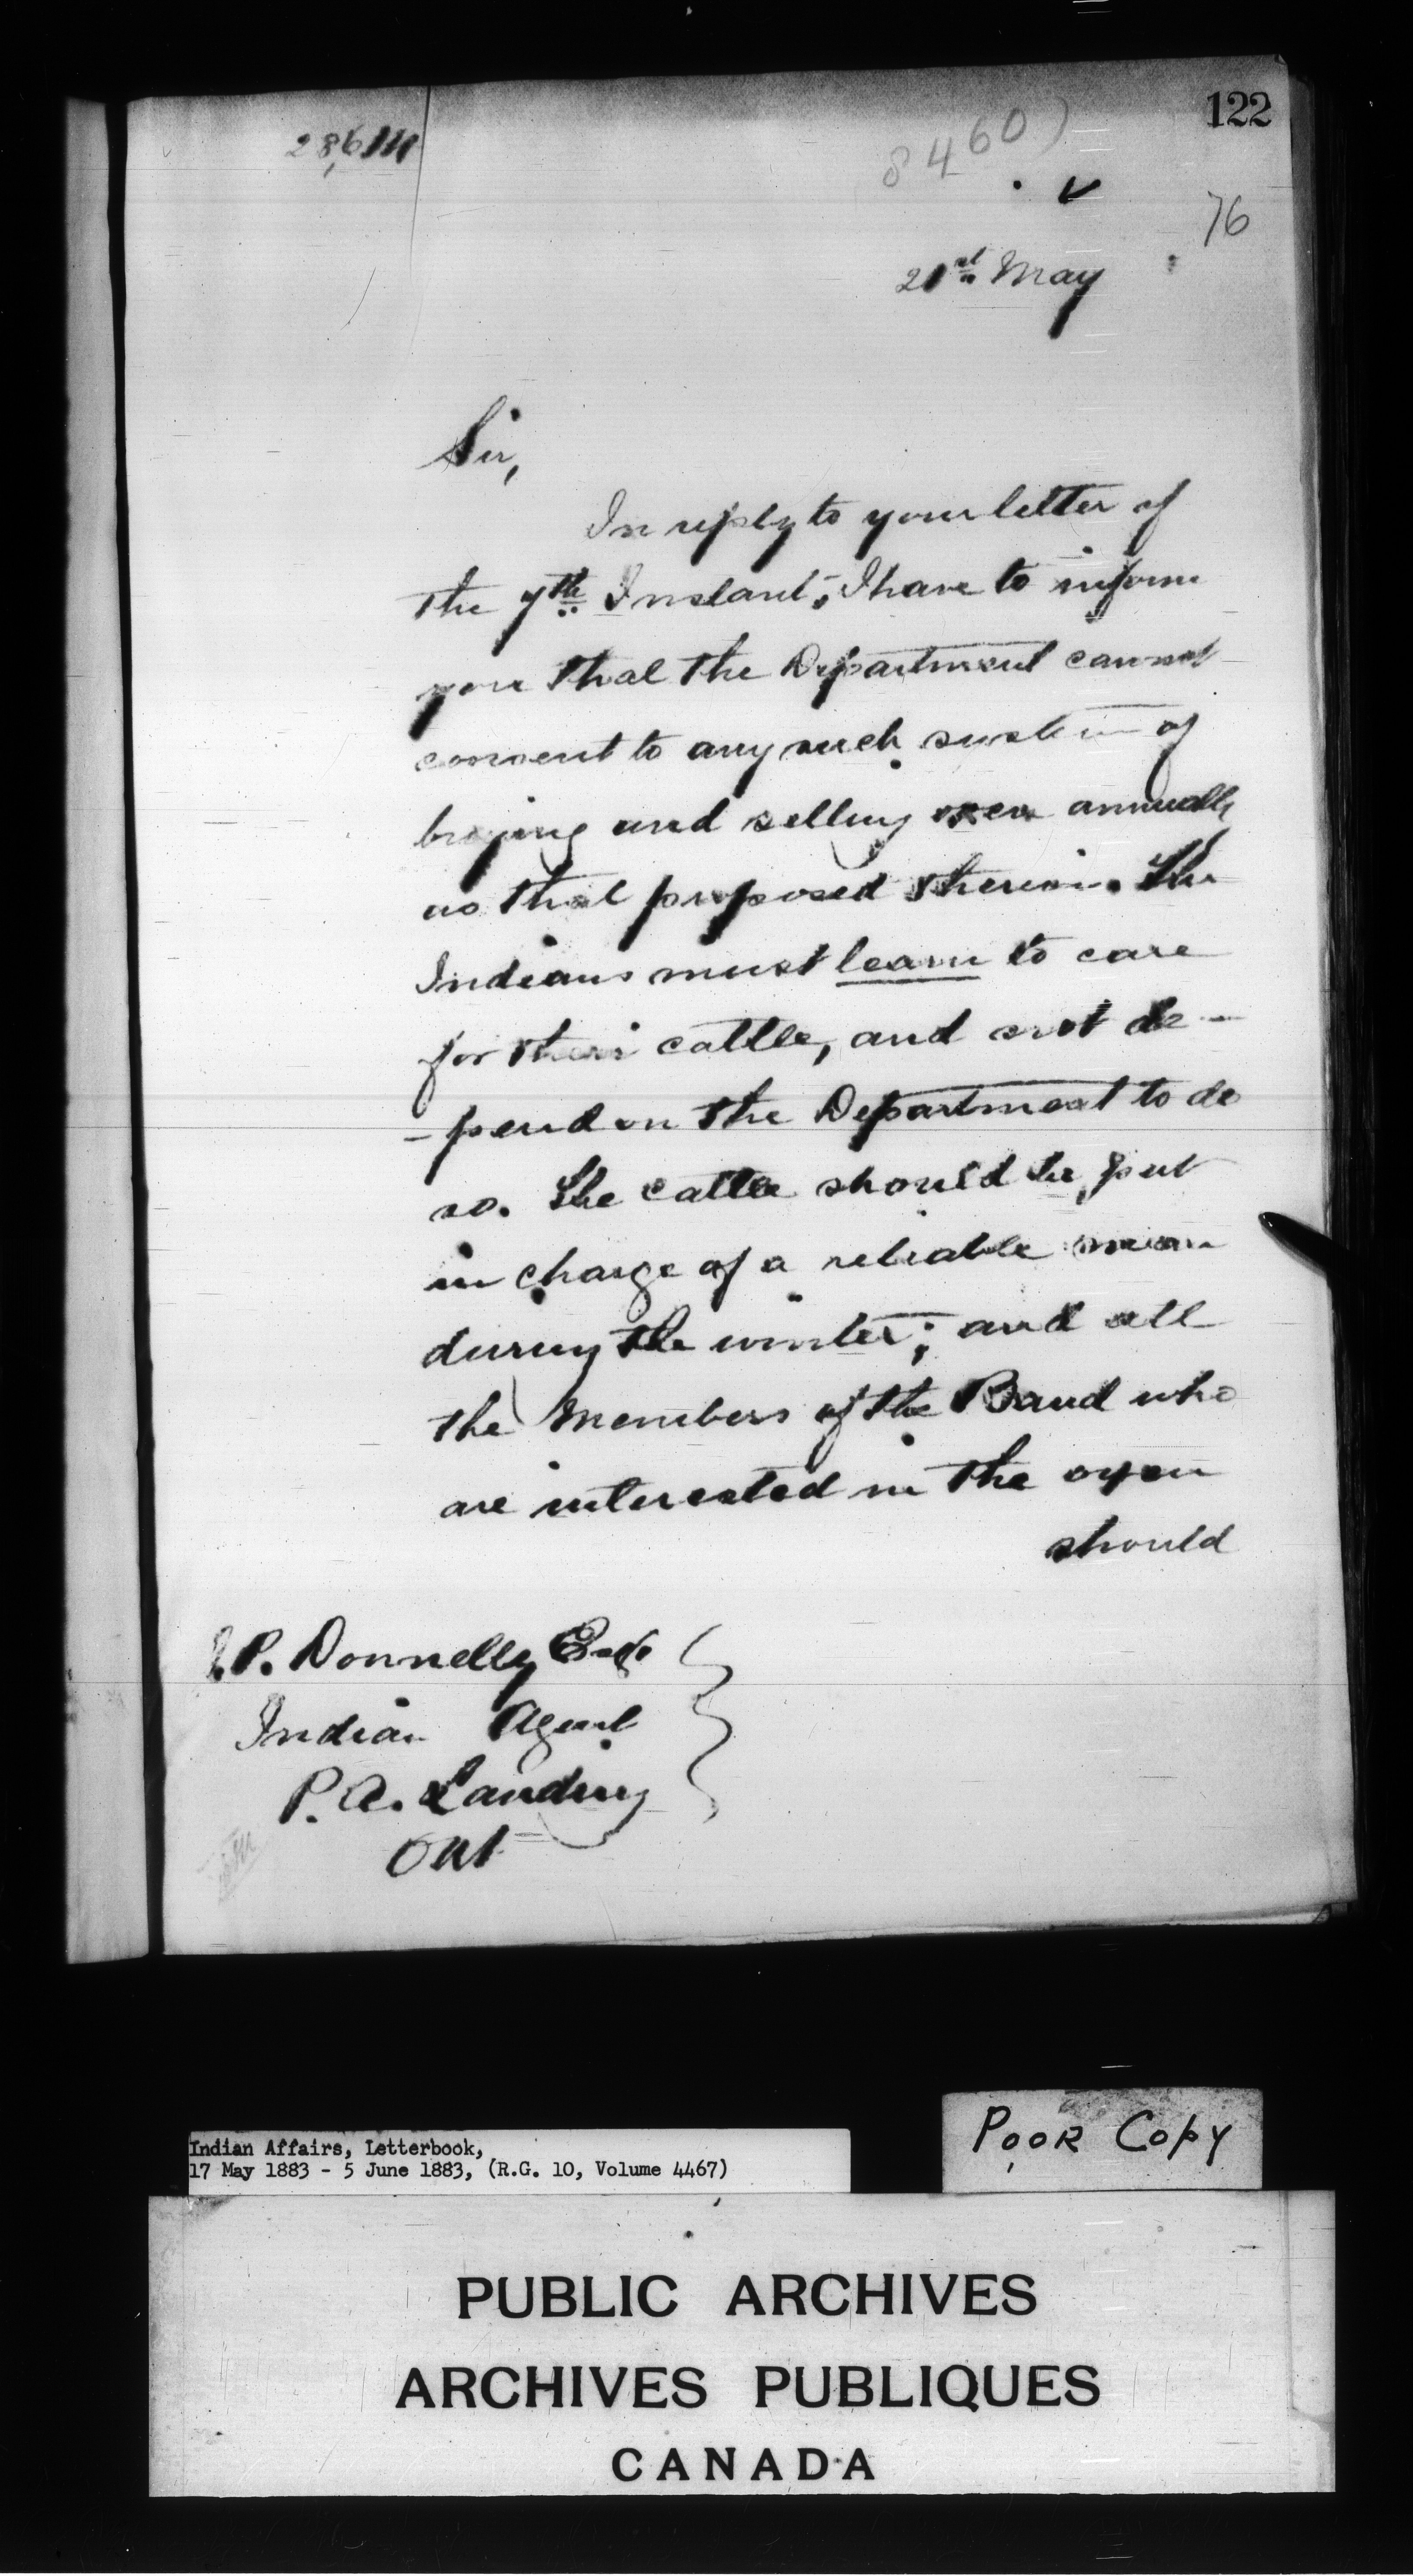 122
8460)
76
21st May
Sir,
In reply to your letter of
the 7th Instant, I have to inform
you that the Department cannot
consent to any such system of
buying and selling oxen annually
as that proposed therein. The
Indians must learn to care
for their cattle, and not de-
-pend on the Department to do
so. The cattle should be put
in charge of a reliable man
during the winter; and all
the Members of the Band who
are interested in the oxen
should
J.P. Donnelly Esq.
Indian Agent
P.A. Landing
Ont
Indian Affairs, Letterbook,
17 May 1883 - 5 June 1883, (R.G. 10, Volume 4467)
POOR COPY
PUBLIC ARCHIVES
ARCHIVES PUBLIQUES
CANADA